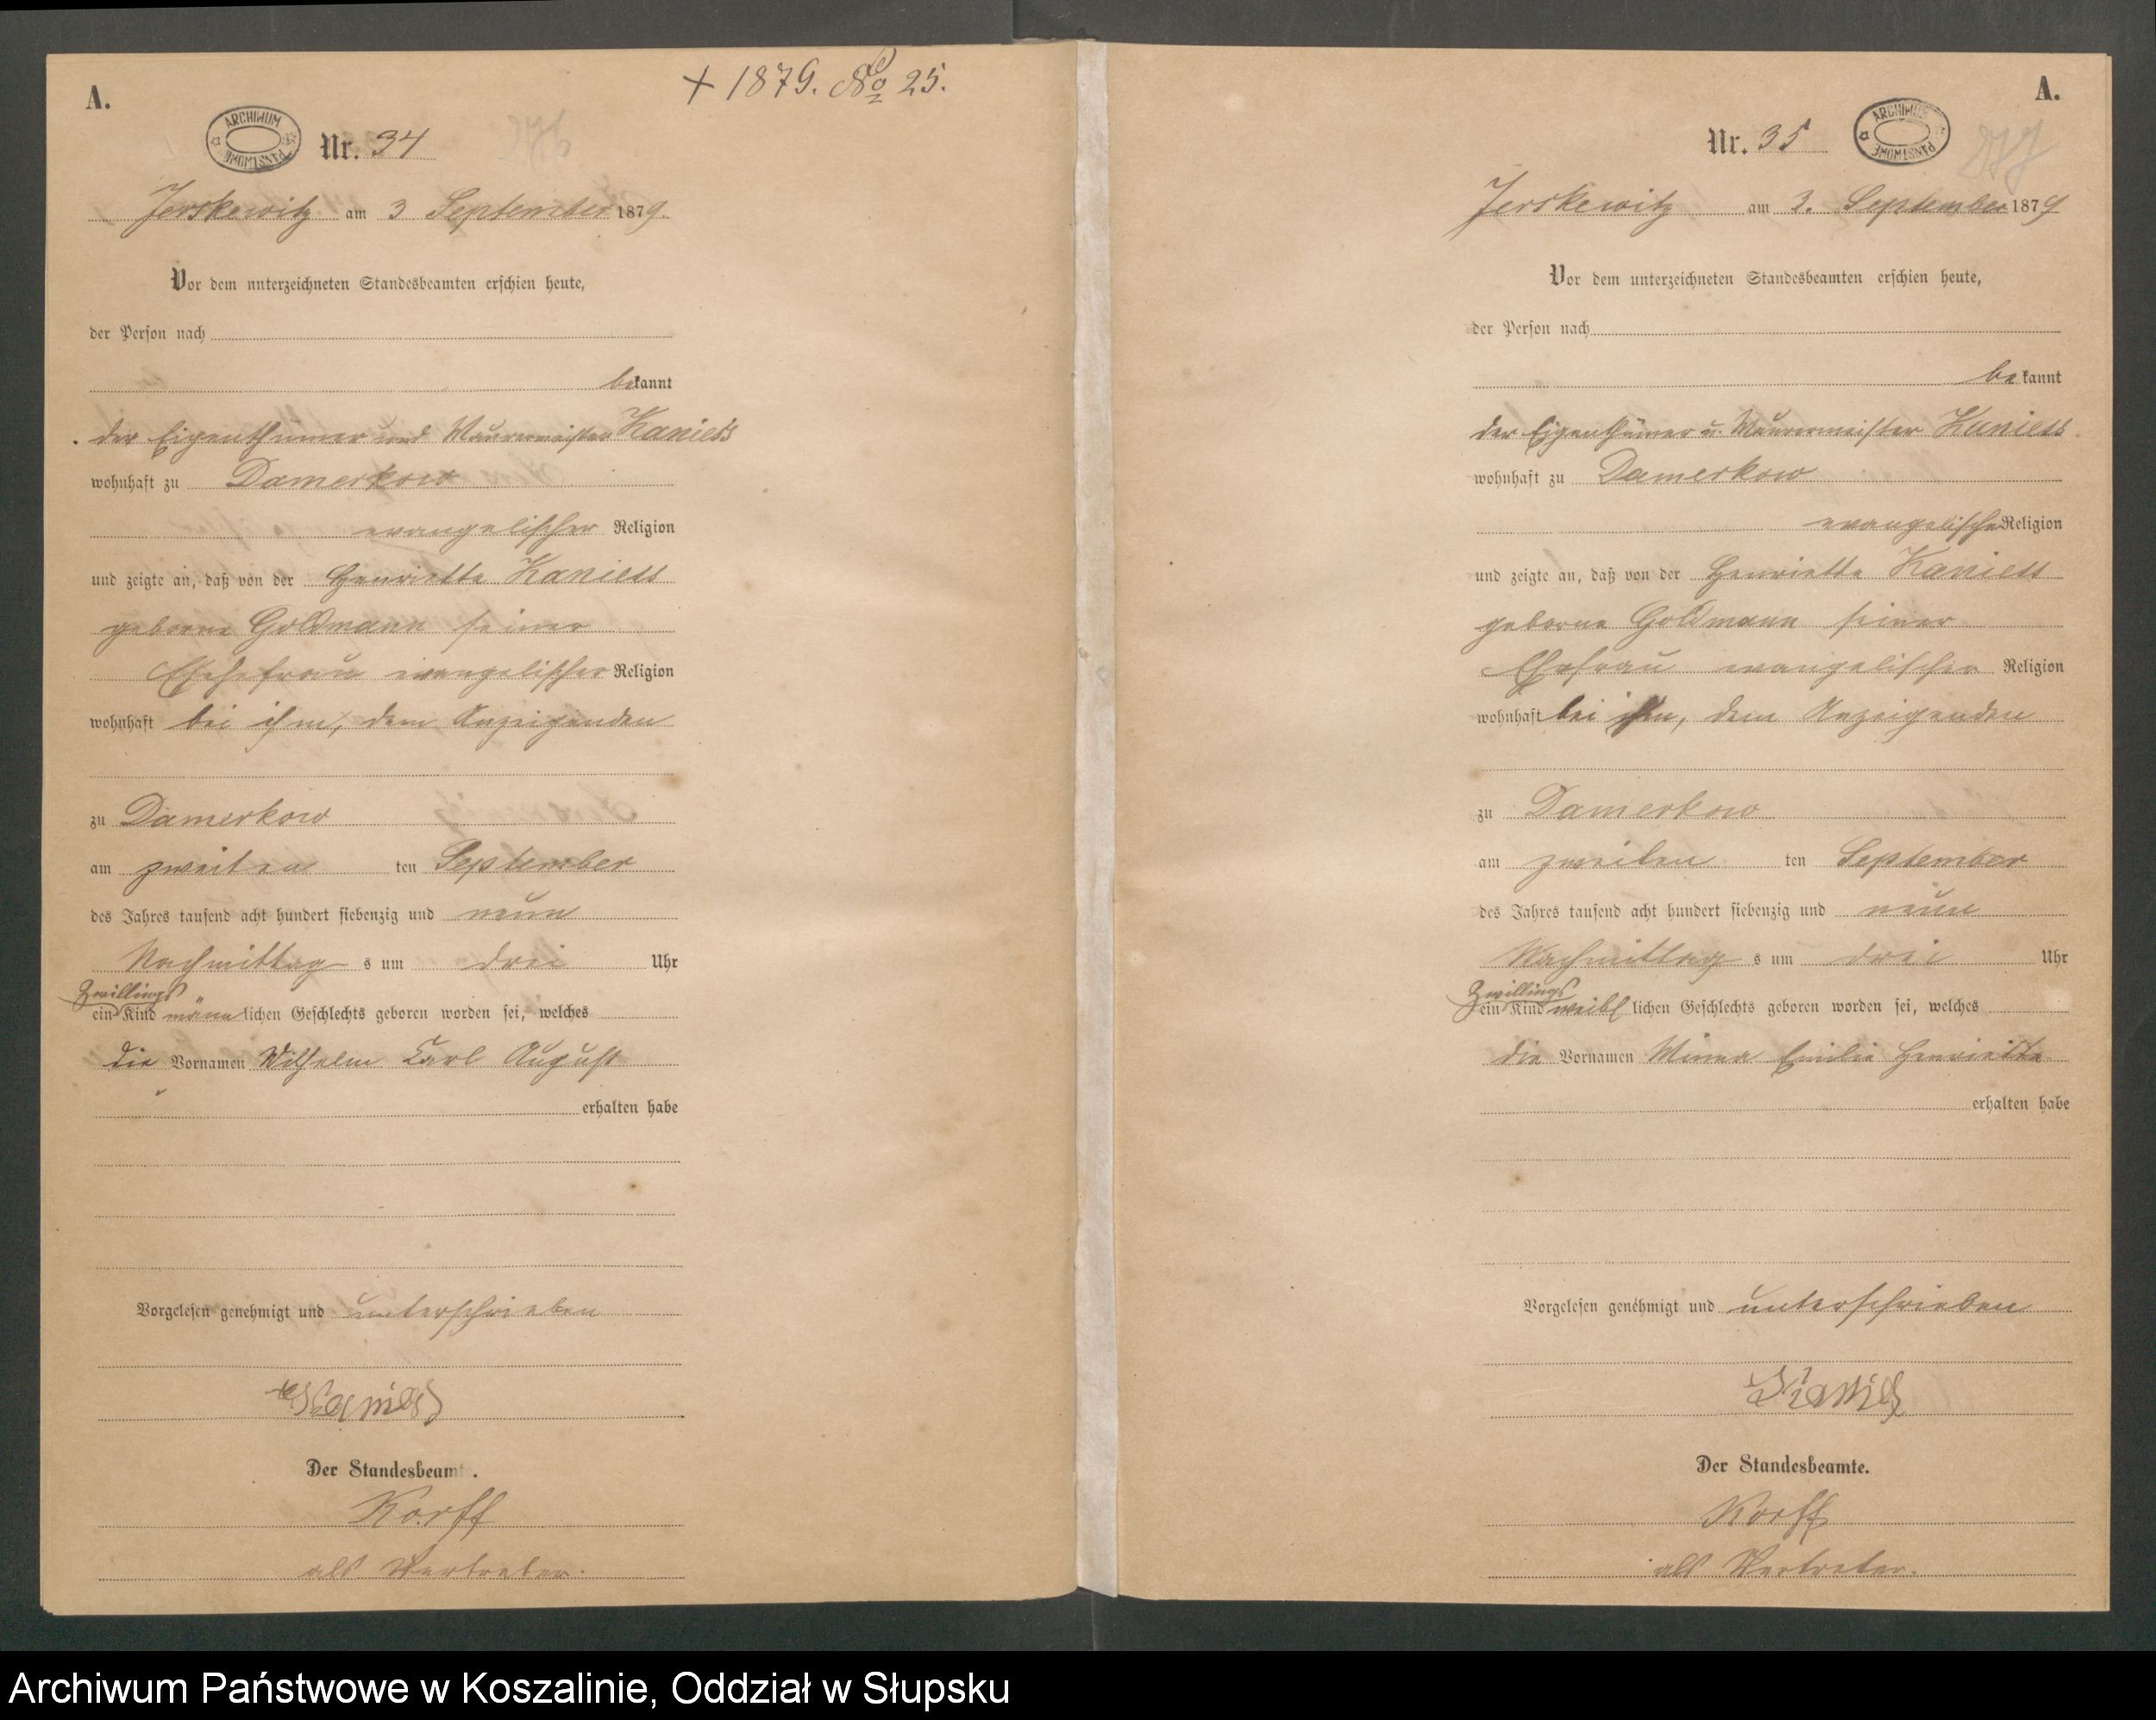 + 1879. No 25.
A.
ARCHIWUM PAŃSTWOWE
Nr. 34
Jerskewitz am 3 September 1879.
Vor dem unterzeichneten Standesbeamten erschien heute,
der Person nach
bekannt
der Eigenthümer und Maurermeister Kaniess
wohnhaft zu Damerkow
evangelischer Religion
und zeigte an, daß von der Henriette Kaniess
geborne Goldmann seiner
Ehefrau evangelischer Religion
wohnhaft bei ihm, dem Anzeigenden
zu Damerkow
am zweiten ten September
des Jahres tausend acht hundert siebenzig und neun
Nachmittag s um drei Uhr
Zwillings
ein Kind männlichen Geschlechts geboren worden sei, welches
die Vornamen Wilhelm Carl August
erhalten habe
Vorgelesen genehmigt und unterschrieben
Kaniess
Der Standesbeamt .
Korff
als Vertreter.
A.
Nr. 35
ARCHIWUM PAŃSTWOWE
Jerskewitz am 3. September 1879
Vor dem unterzeichneten Standesbeamten erschien heute,
der Person nach
bekannt
der Eigenthümer u. Maurermeister Kaniess
wohnhaft zu Damerkow
evangelischer Religion
und zeigte an, daß von der Henriette Kaniess
geborne Goldmann seiner
Ehefrau evangelischer Religion
wohnhaft bei ihm, dem Anzeigenden
zu Damerkow
am zweiten ten September
des Jahres tausend acht hundert siebenzig und neun
Nachmittag s um drei Uhr
Zwillings
ein Kind weiblichen Geschlechts geboren worden sei, welches
die Vornamen Minna Emilie Henriette
erhalten habe
Vorgelesen genehmigt und unterschrieben
Kaniess
Der Standesbeamte.
Korff
als Vertreter.
Archiwum Państwowe w Koszalinie, Oddział w Słupsku